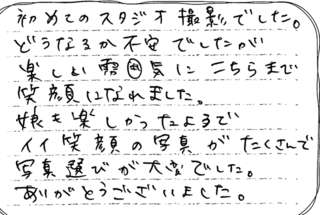 初めてのスタジオ撮影でした。
どうなるか不安でしたが
楽しい雰囲気に こちらまで
笑顔になれました。
娘も楽しかったようで
イイ笑顔の写真がたくさんで
写真選びが大変でした。
ありがとうございました。